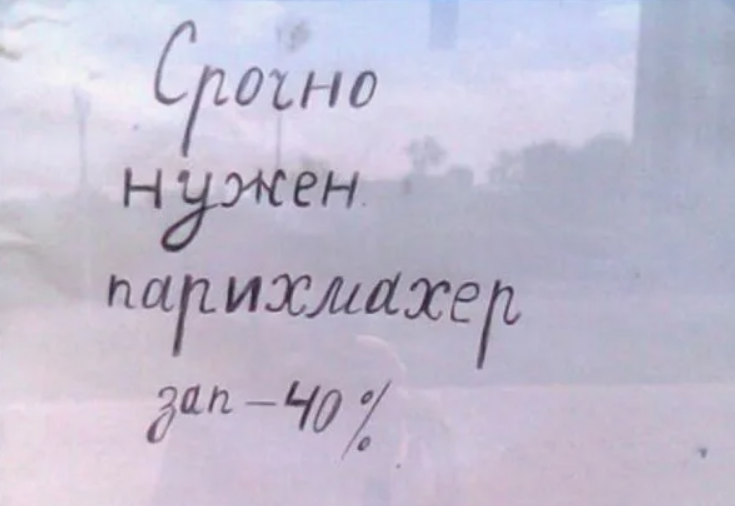 Срочно
нужен
парихмахер
зап – 40 %